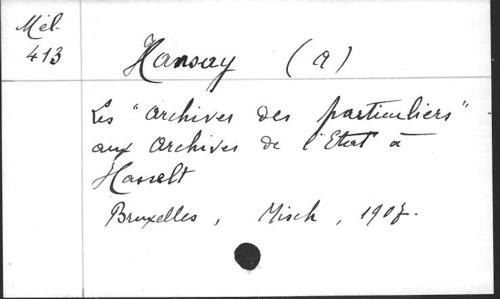 Mél.
413
Hansay (A)
Les "archives des particuliers"
aux Archives de l'Etat à
Hasselt
Bruxelles, Misch, 1907.